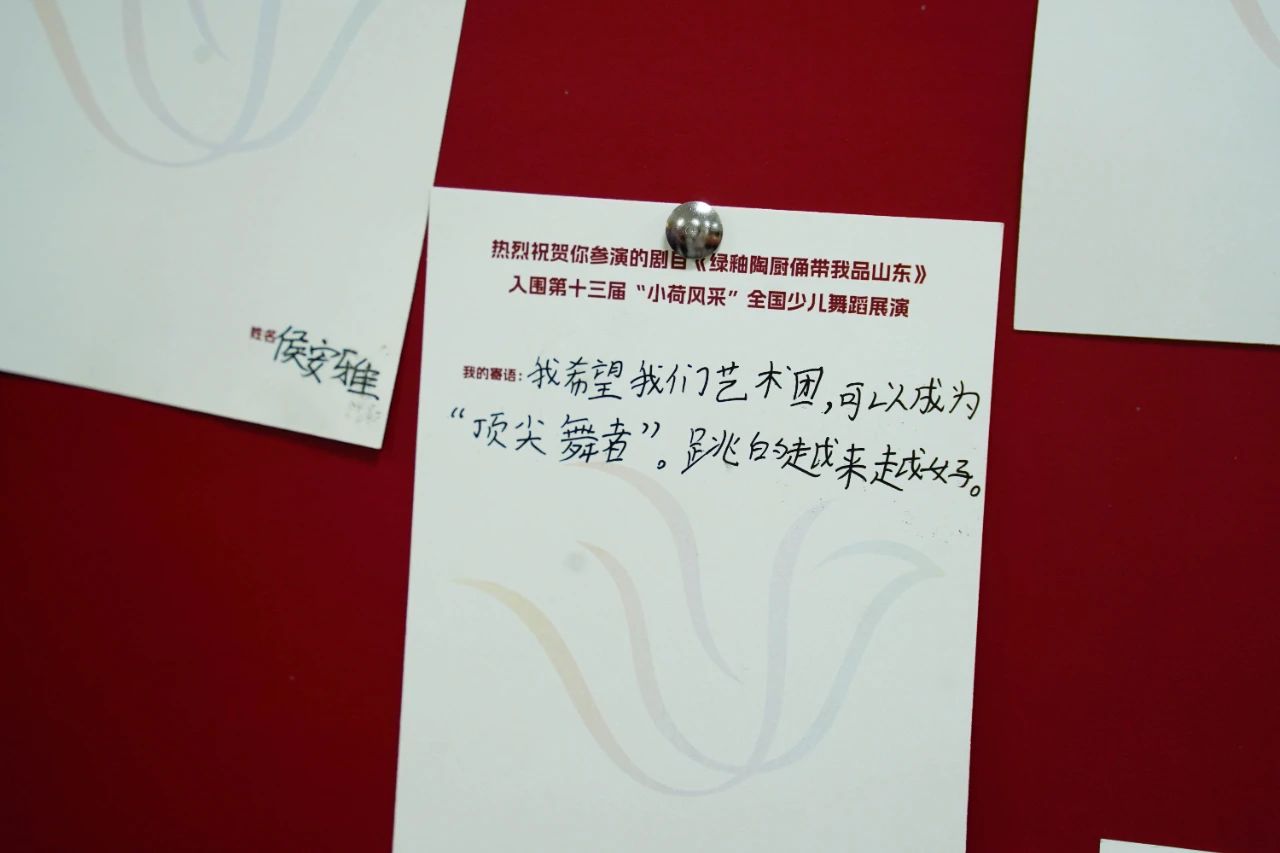 热烈祝贺你参演的剧目《绿釉陶厨俑带我品山东》
入围第十三届“小荷风采”全国少儿舞蹈展演
我的寄语：我希望我们艺术团，可以成为
“顶尖舞者”。跳的越来越好。
姓名 侯安雅